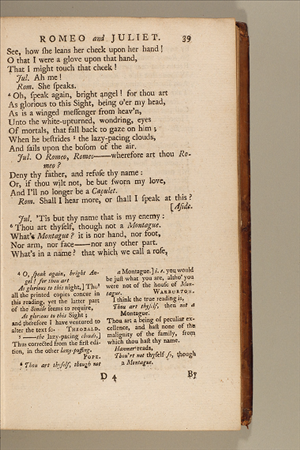 ROMEO and JULIET. 39
See, how ſhe leans her cheek upon her hand!
O that I were a glove upon that hand,
That I might touch that cheek!
Jul. Ah me!
Rom. She ſpeaks.
⁶ Oh, ſpeak again, bright angel! for thou art
As glorious to this Sight, being o'er my head,
As is a winged meſſenger from heav'n,
Unto the white-upturned, wondring, eyes
Of mortals, that fall back to gaze on him;
When he beſtrides ⁷ the lazy-pacing clouds,
And ſails upon the boſom of the air.
Jul. O Romeo, Romeo——wherefore art thou Ro-
meo?
Deny thy father, and refuſe thy name:
Or, if thou wilt not, be but ſworn my love,
And I'll no longer be a Capulet.
Rom. Shall I hear more, or ſhall I ſpeak at this?
[Aſide.
Jul. 'Tis but thy name that is my enemy:
⁸ Thou art thyſelf, though not a Montague.
What's Montague? it is nor hand, nor foot,
Nor arm, nor face——nor any other part.
What's in a name? that which we call a roſe,
⁶ O, ſpeak again, bright An-
gel! for thou art
As glorious to this night,] Tho'
all the printed copies concur in
this reading, yet the latter part
of the Simile ſeems to require,
As glorious to this Sight;
and therefore I have ventured to
alter the text ſo. THEOBALD.
⁷ ——the lazy-pacing clouds,]
Thus corrected from the firſt edi-
tion, in the other lazy-puffing.
POPE.
⁸ Thou art thyſelf, though not
a Montague.] i. e. you would
be juſt what you are, altho' you
were not of the houſe of Mon-
tague. WARBURTON.
I think the true reading is,
Thou art thyſelf, then not a
Montague.
Thou art a being of peculiar ex-
cellence, and haſt none of the
malignity of the family, from
which thou haſt thy name.
Hanmer reads,
Thou'rt not thyſelf ſo, though
a Montague.
D 4 By